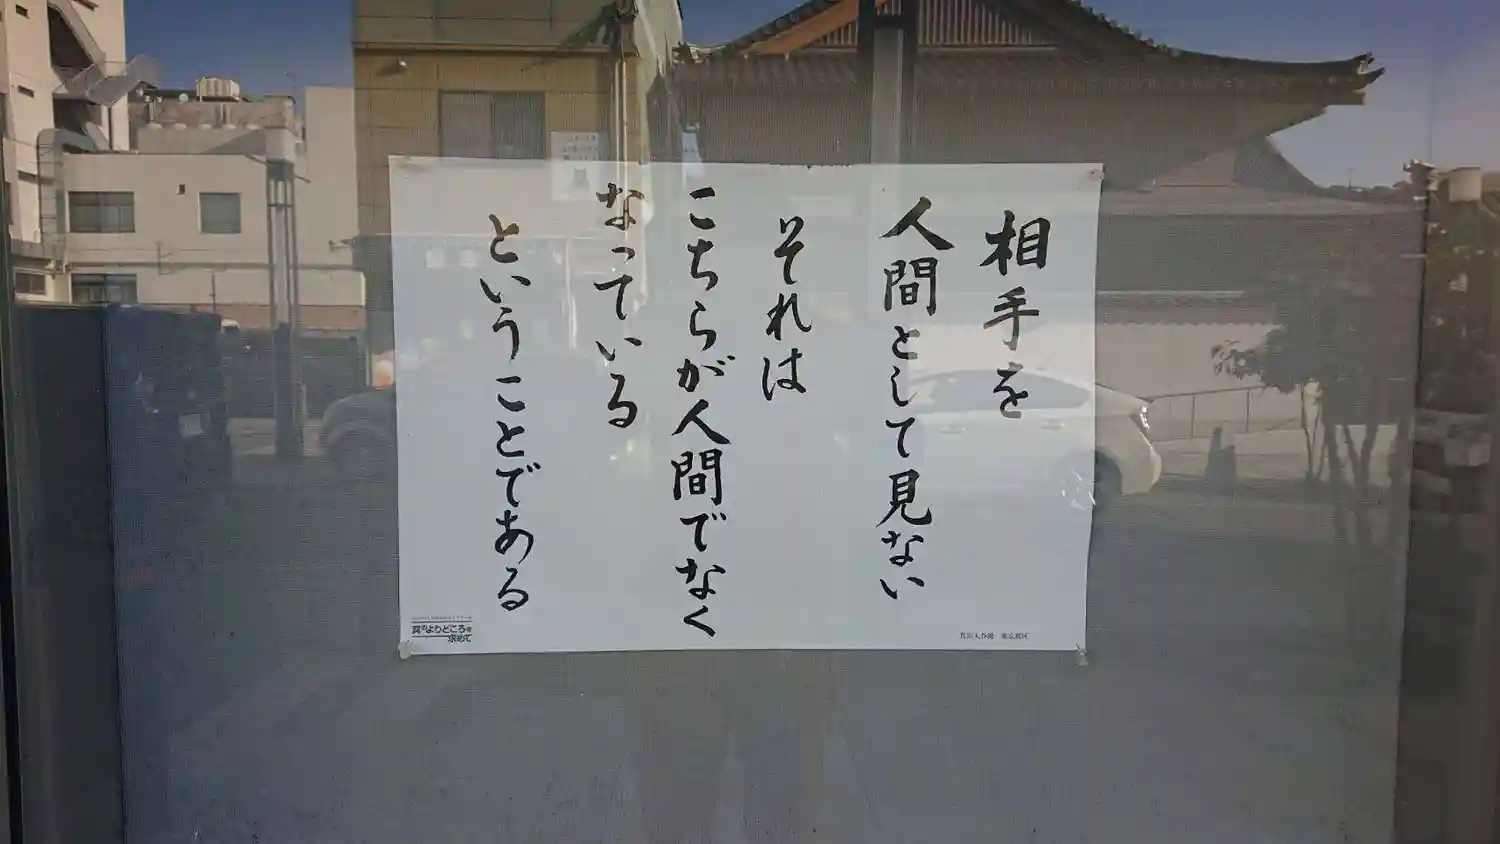 相手を
人間として見ない
それは
こちらが人間でなく
なっている
ということである
真のよりどころを
求めて